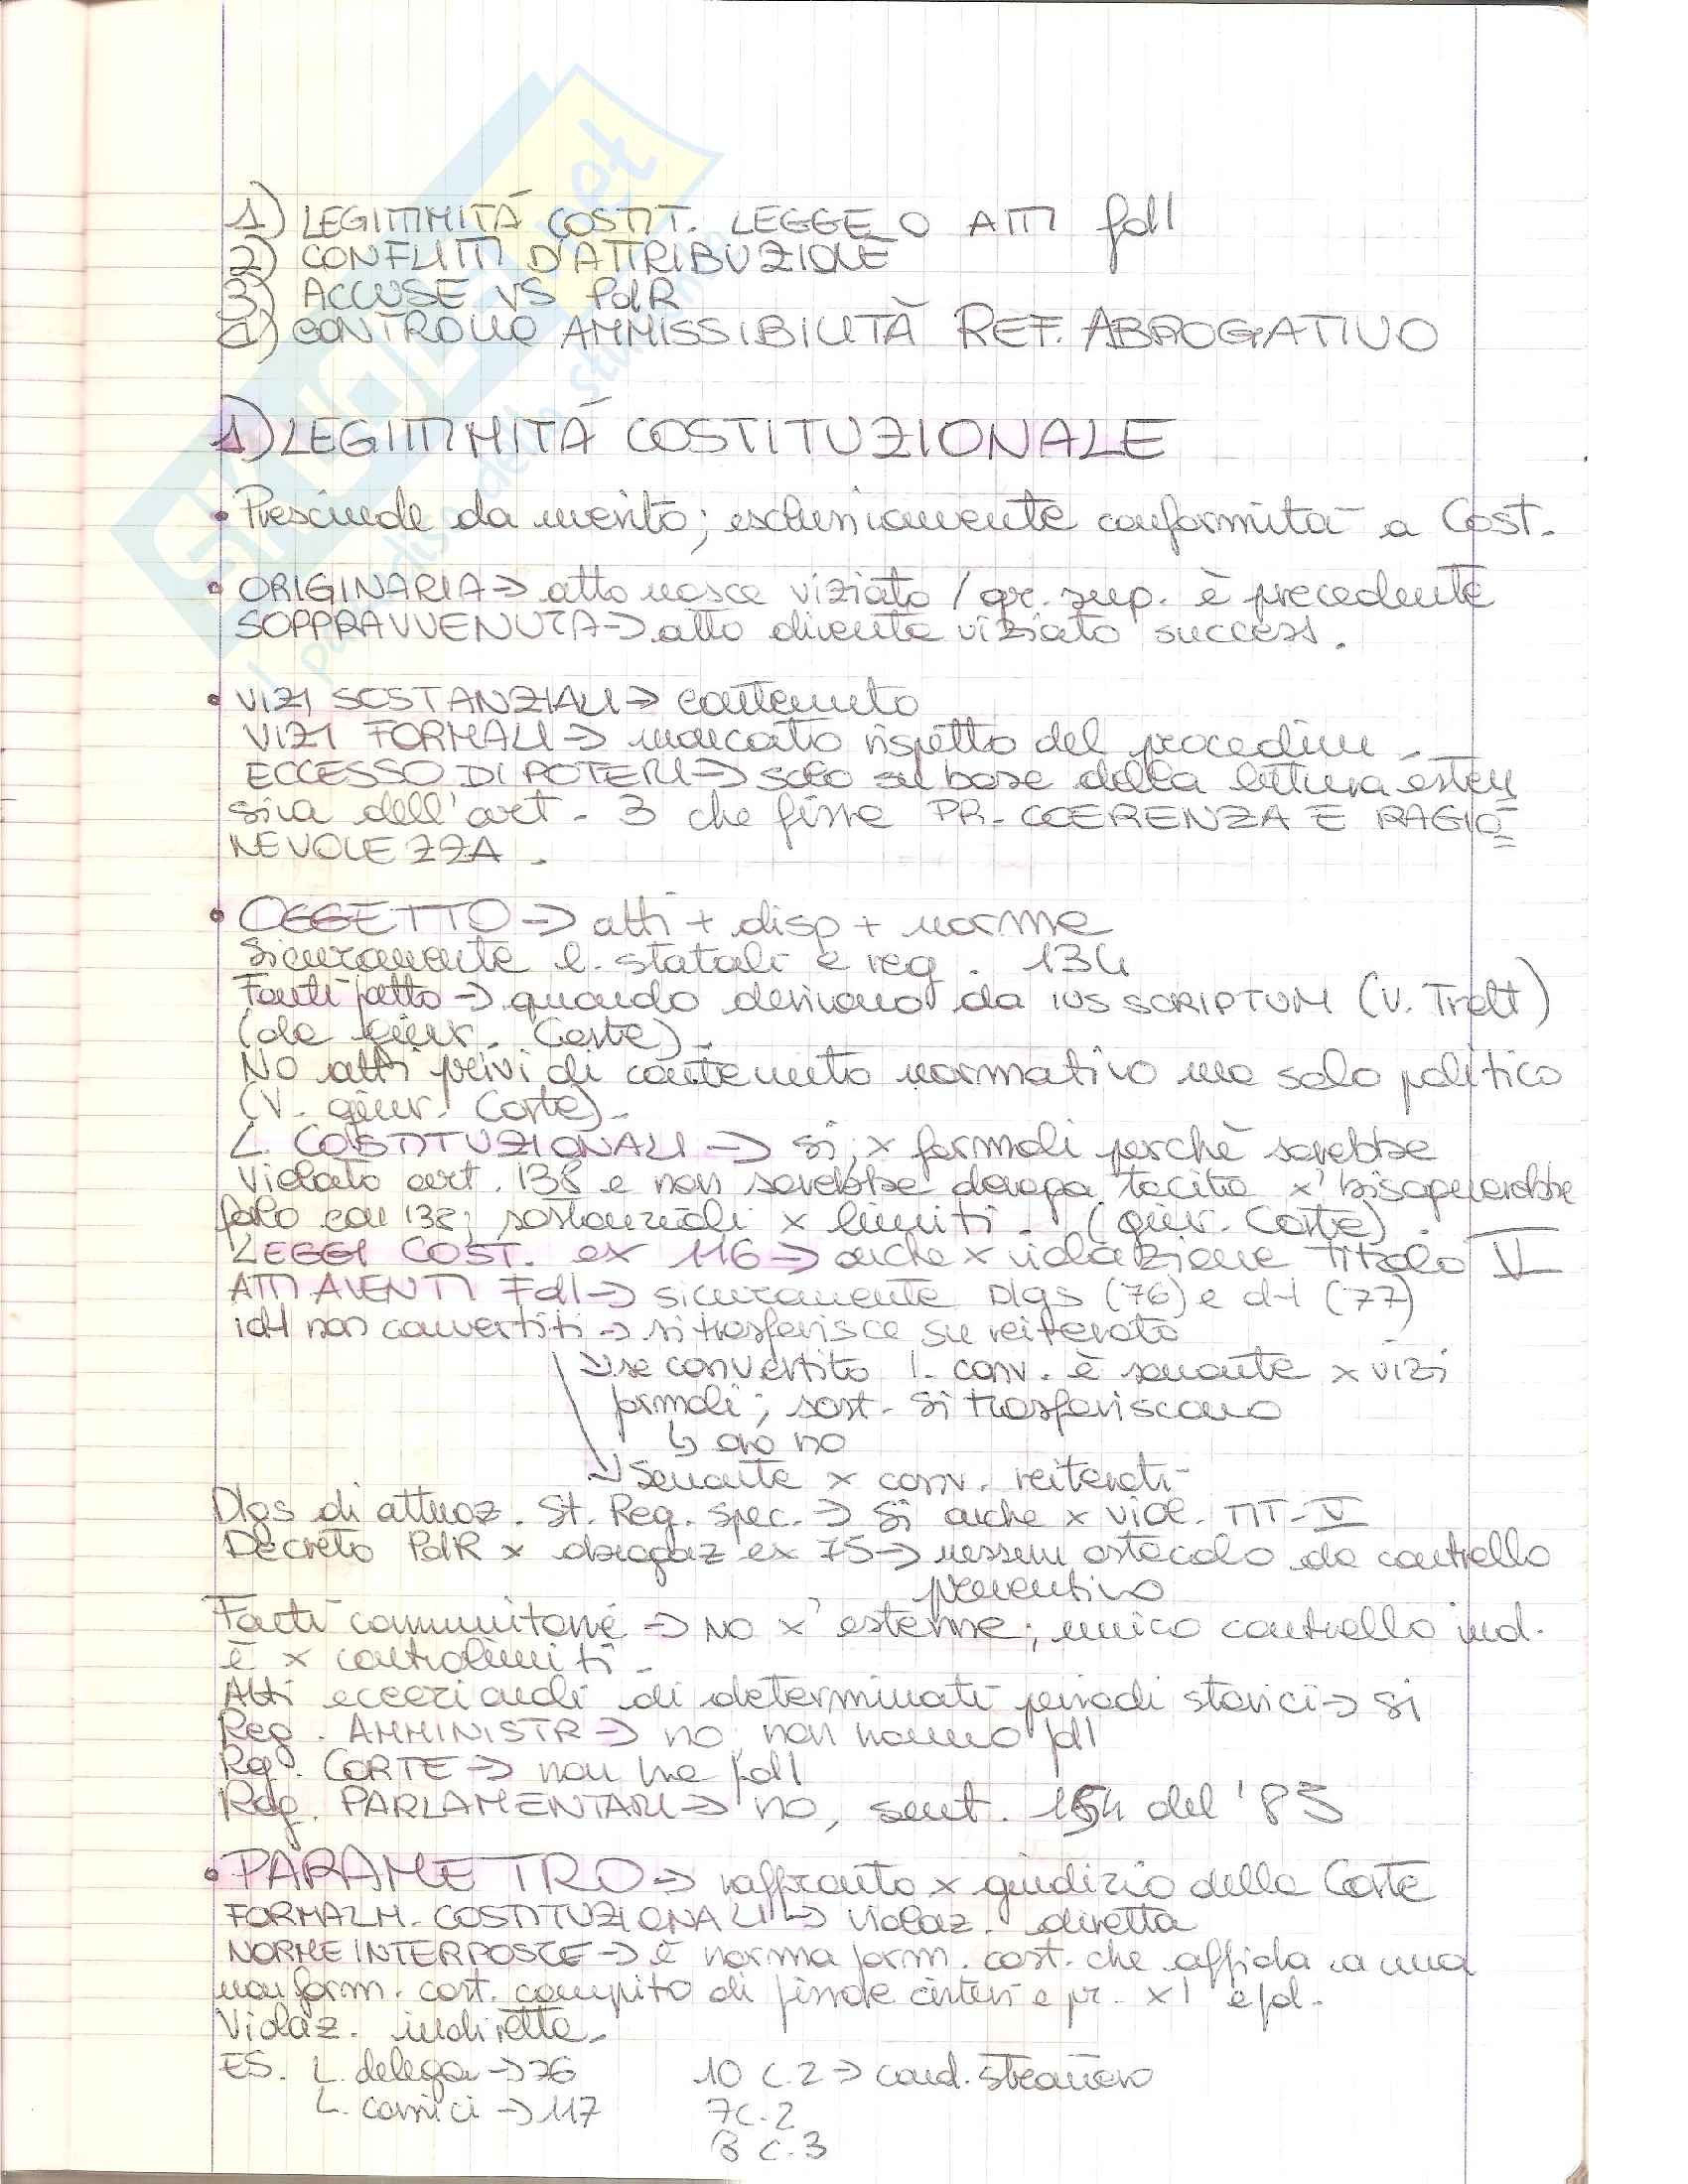 1) LEGITTIMITÀ COSTIT. LEGGE O ATTI fdl
2) CONFLITTI D'ATTRIBUZIONE
3) ACCUSE VS PdR
a) CONTROLLO AMMISSIBILITÀ REF. ABROGATIVO
1) LEGITTIMITÀ COSTITUZIONALE
• Prescinde da merito; esclusivamente conformità a Cost.
• ORIGINARIA → atto nasce viziato / gr. sup. è precedente
SOPPRAVVENUTA → atto diventa viziato success.
• VIZI SOSTANZIALI → contenuto
VIZI FORMALI → mancato rispetto del procedim.
ECCESSO DI POTERE → solo su base della lettura esten
siva dell'art. 3 che fissa PR. COERENZA E RAGIO
NEVOLEZZA.
• OGGETTO → atti + disp + norme
Sicuramente l. statali e reg. 134
Fonti fatto → quando derivano da IUS SCRIPTUM (V. Tratt)
(da giur. Corte).
No atti privi di contenuto normativo ma solo politico
(V. giur. Corte).
L. COSTITUZIONALI → si, x formali perchè sarebbe
violato art. 138 e non sarebbe deroga tacita x' bisognerebbe
farlo con 138; sostanziali x limiti. (giur. Corte).
LEGGI COST. ex 116 → anche x violazione Titolo V
ATTI AVENTI Fdl → sicuramente Dlgs (76) e d-l (77)
i d-l non convertiti → si trasferisce su reiterato
→ se convertito l. conv. è sanante x vizi
formali; sost. si trasferiscono
↳ ora no
→ Sanante x conv. reiterati
Dlgs di attuaz. St. Reg. spec. → Si anche x viol. TIT. V
Decreto PdR x abrogaz ex 75 → nessun ostacolo da controllo
preventivo
Fonti comunitarie → No x' esterne; unico controllo ind.
è x controlimiti.
Atti eccezionali di determinati periodi storici → si
Reg. AMMINISTR → no, non hanno fdl
Rg. CORTE → non ha fdl
Reg. PARLAMENTARI → no, sent. 154 del '85
• PARAMETRO → raffronto x giudizio della Corte
FORMALM. COSTITUZIONALI → violaz. diretta
NORME INTERPOSTE → è norma form. cost. che affida a una
non form. cost. compito di fissare criteri e pr. x l e fdl.
Violaz. indiretta.
ES. L. delega → 76 10 c.2 → cond. straniero
L. cornici → 117 7 c.2
8 c.3